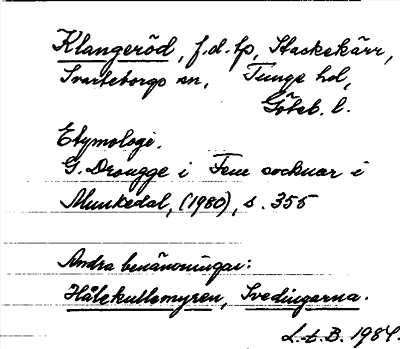 Klangeröd, f.d. tp, Stackekärr,
Svarteborgs sn, Tunge hd,
Göteb. l.
Etymologi.
G. Drougge i Fem socknar i
Munkedal, (1980), s. 355
Andra benämningar:
Hålekullemyren, Svedingarna.
L.t.B. 1984.